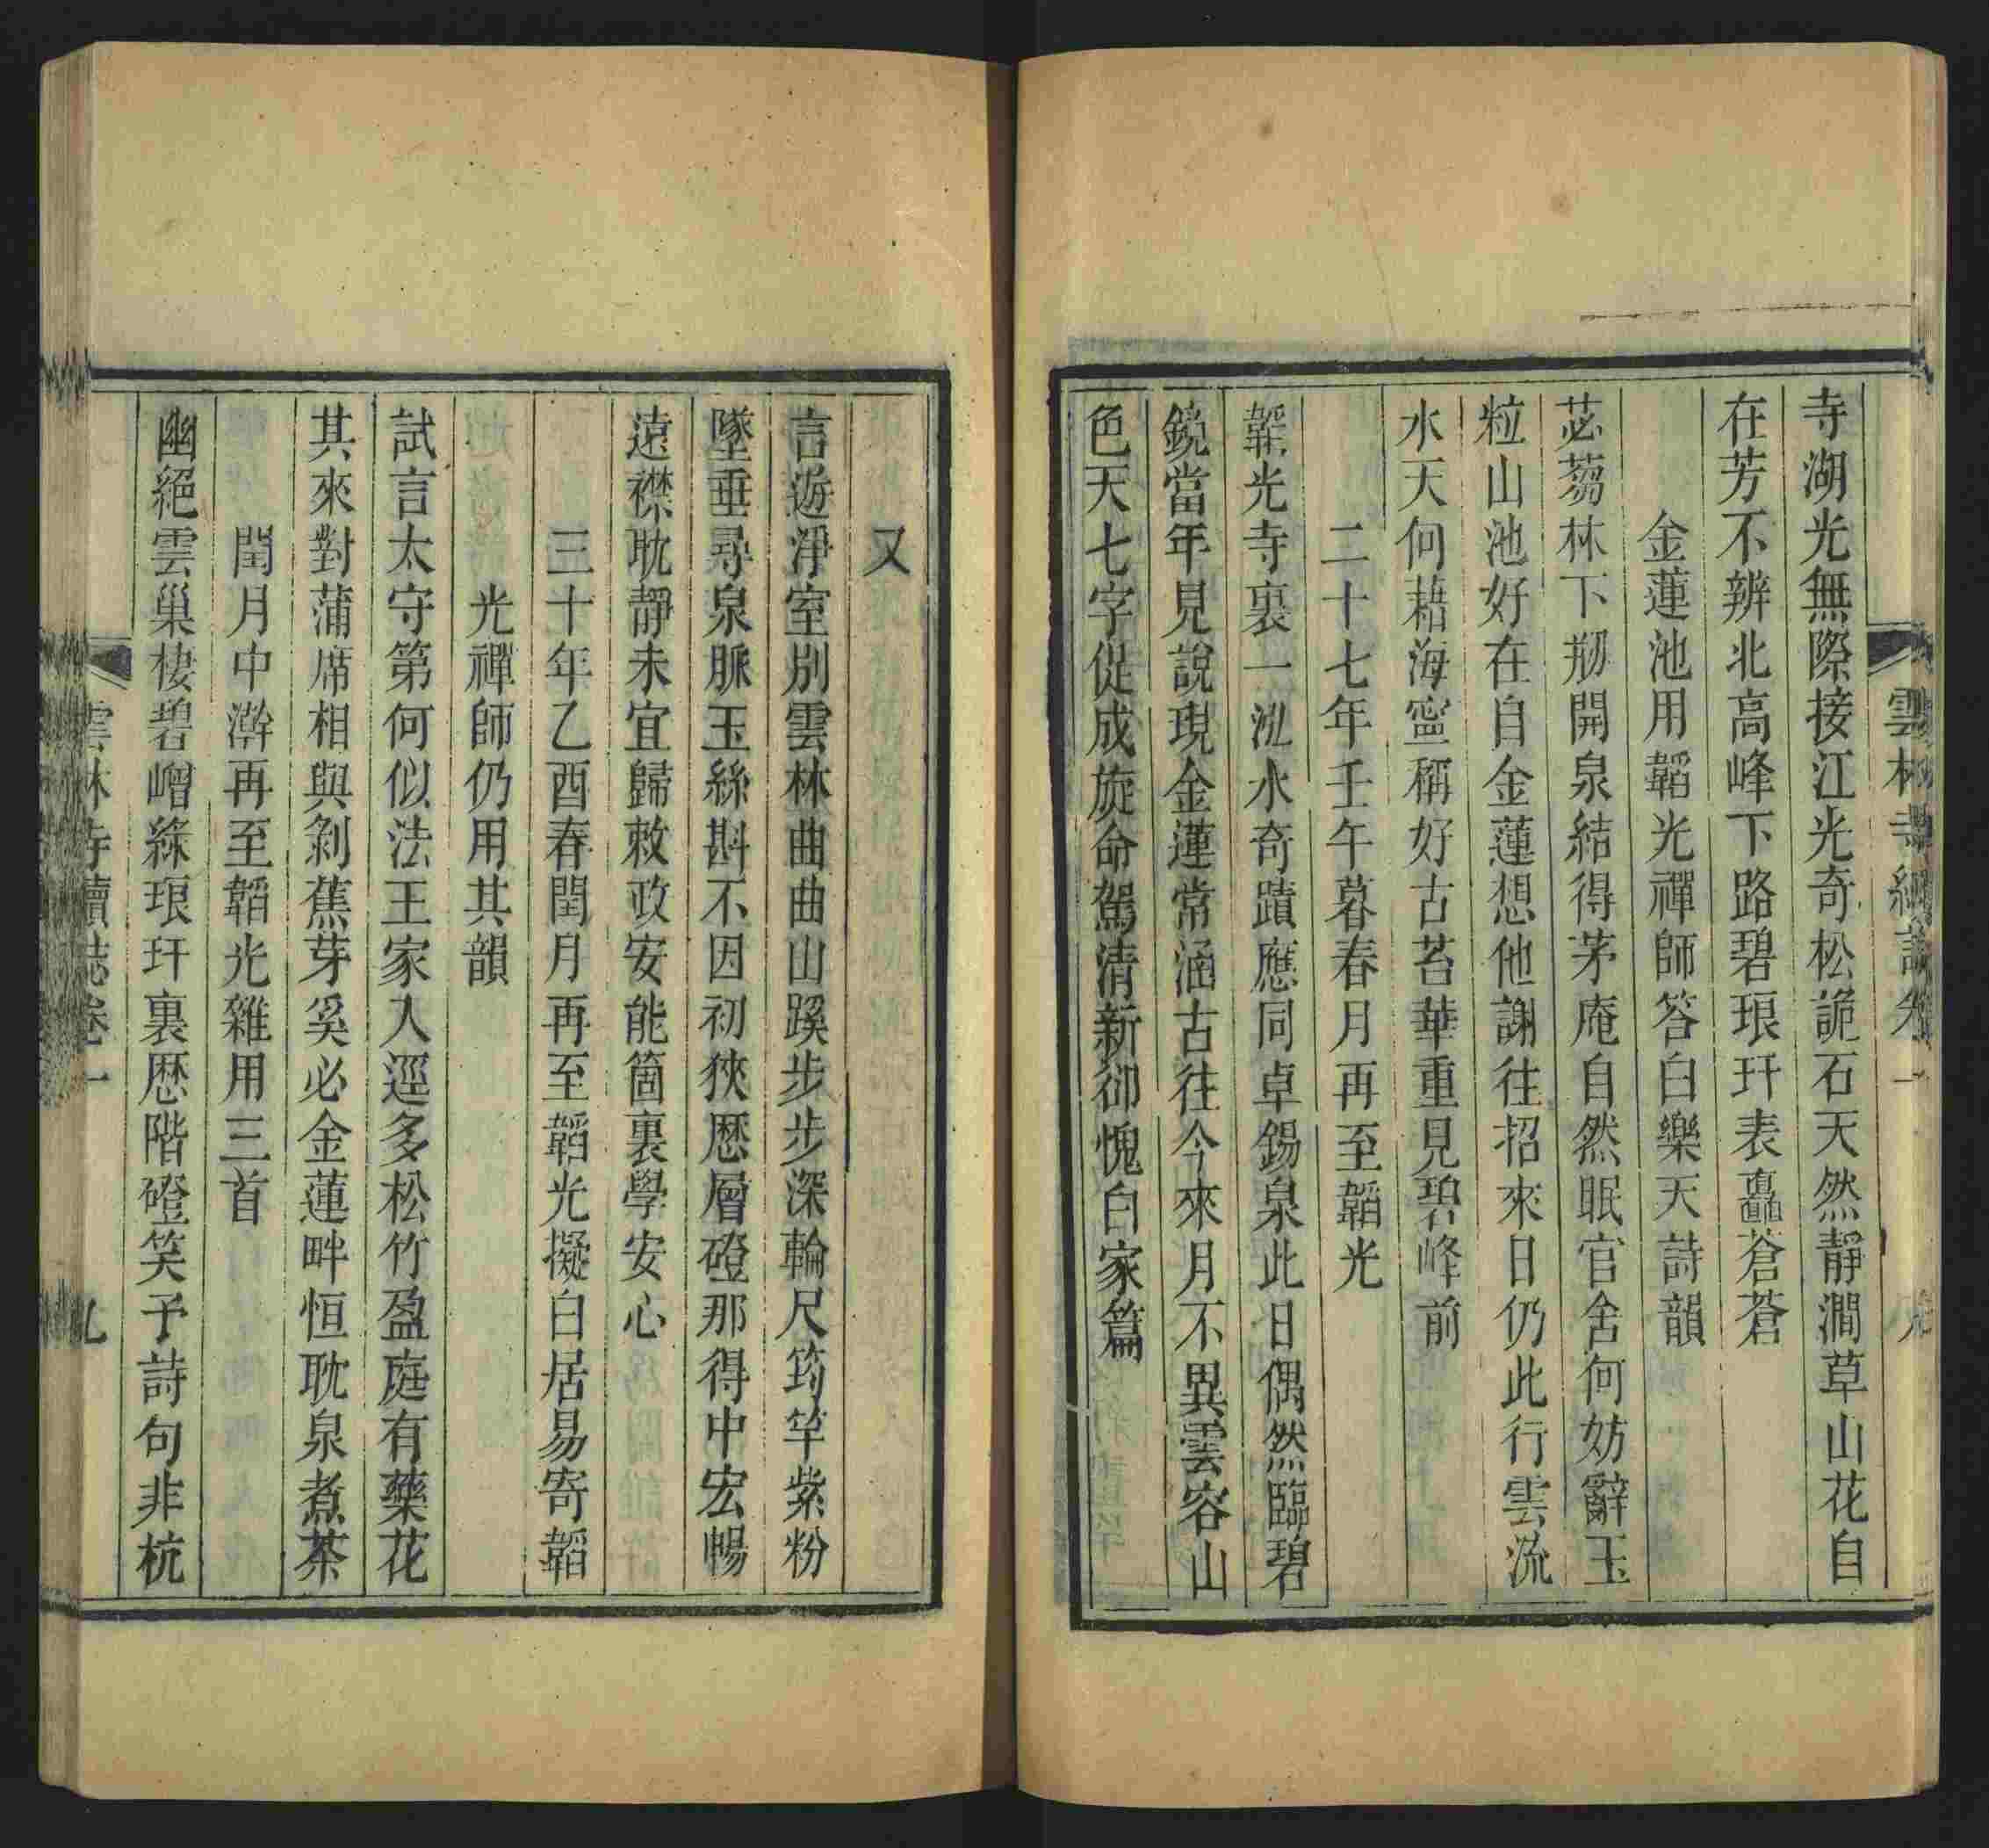 雲林寺續誌卷一
寺湖光無際接江光奇松詭石天然靜澗草山花自
在芳不辨北高峰下路碧琅玕表矗蒼蒼
金蓮池用韜光禪師答白樂天詩韻
苾蒭林下剏開泉結得茅庵自然眠官舍何妨辭玉
粒山池好在自金蓮想他謝往招來日仍此行雲流
水天何藉海寧稱好古苔華重見碧峰前
二十七年壬午暮春月再至韜光
韜光寺裏一泓水奇蹟應同卓錫泉此日偶然臨碧
鏡當年見說現金蓮常涵古往今來月不異雲容山
色天七字促成旋命駕清新卻愧白家篇
又
言遊淨室別雲林曲曲山蹊步步深輪尺筠竿紫粉
墜垂尋泉脈玉絲斟不因初狹歷層磴那得中宏暢
遠襟耽靜未宜歸敕政安能箇裏學安心
三十年乙酉春閏月再至韜光擬白居易寄韜
光禪師仍用其韻
試言太守第何似法王家入逕多松竹盈庭有藥花
其來對蒲席相與剝蕉芽奚必金蓮畔恒耽泉煮茶
閏月中澣再至韜光雜用三首
幽絕雲巢棲碧嶒綠琅玕裏歷階磴笑予詩句非杭
雲林寺續誌卷一
九